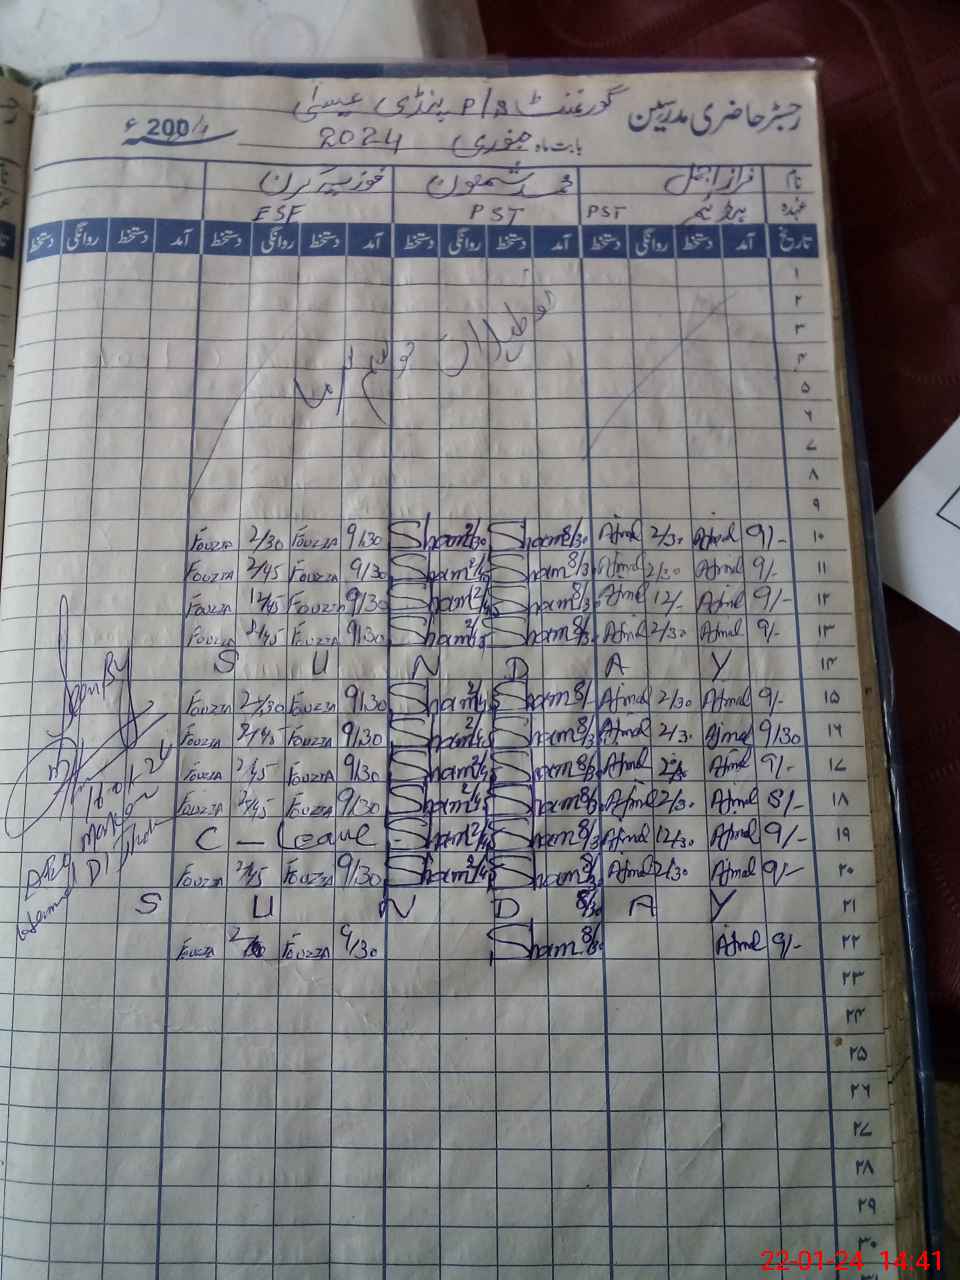 رجسٹر حاضری مدرسین گورنمنٹ P/S پنڈی عیسیٰ
بابت ماہ جنوری 2024 200 ء
نام محمد شمعون فوزیہ کرن
عہدہ PST PST ESF
تاریخ آمد دستخط روانگی دستخط آمد دستخط روانگی دستخط آمد دستخط روانگی دستخط آمد دستخط روانگی دستخط
۱
۲
۳
۴
۵
۶
۷
۸
۹
Fouzia 2/30 Fouzia 9/30 Sham 2/30 Sham 8/30 Ajmal 2/30 Ajmal 9/- ۱۰
Fouzia 2/45 Fouzia 9/30 Sham 2/45 Sham 8/30 Ajmal 2/30 Ajmal 9/- ۱۱
Fouzia 12/45 Fouzia 9/30 Sham Sham 8/30 Ajmal 12/- Ajmal 9/- ۱۲
Fouzia 2/45 Fouzia 9/30 Sham 2/45 Sham 8/30 Ajmal 2/30 Ajmal 9/- ۱۳
S U N D A Y ۱۴
Fouzia 2/30 Fouzia 9/30 Sham 2/45 Sham 8/ Ajmal 2/30 Ajmal 9/- ۱۵
Fouzia 2/45 Fouzia 9/30 Sham 2/45 Sham 8/30 Ajmal 2/30 Ajmal 9/30 ۱۶
Fouzia 2/45 Fouzia 9/30 Sham 2/45 Sham 8/30 Ajmal Ajmal 9/- ۱۷
Fouzia 2/45 Fouzia 9/30 Sham 2/45 Sham 8/30 Ajmal 2/30 Ajmal 8/- ۱۸
C - Leave - Sham 2/45 Sham 8/30 Ajmal 12/30 Ajmal 9/- ۱۹
Fouzia 2/45 Fouzia 9/30 Sham 2/45 Sham 8/30 Ajmal 2/30 Ajmal 9/- ۲۰
S U N D A Y ۲۱
Fouzia Fouzia 9/30 Sham 8/30 Ajmal 9/- ۲۲
۲۳
۲۴
۲۵
۲۶
۲۷
۲۸
۲۹
۳۰
Seen By
16-01-24
22-01-24 14:41